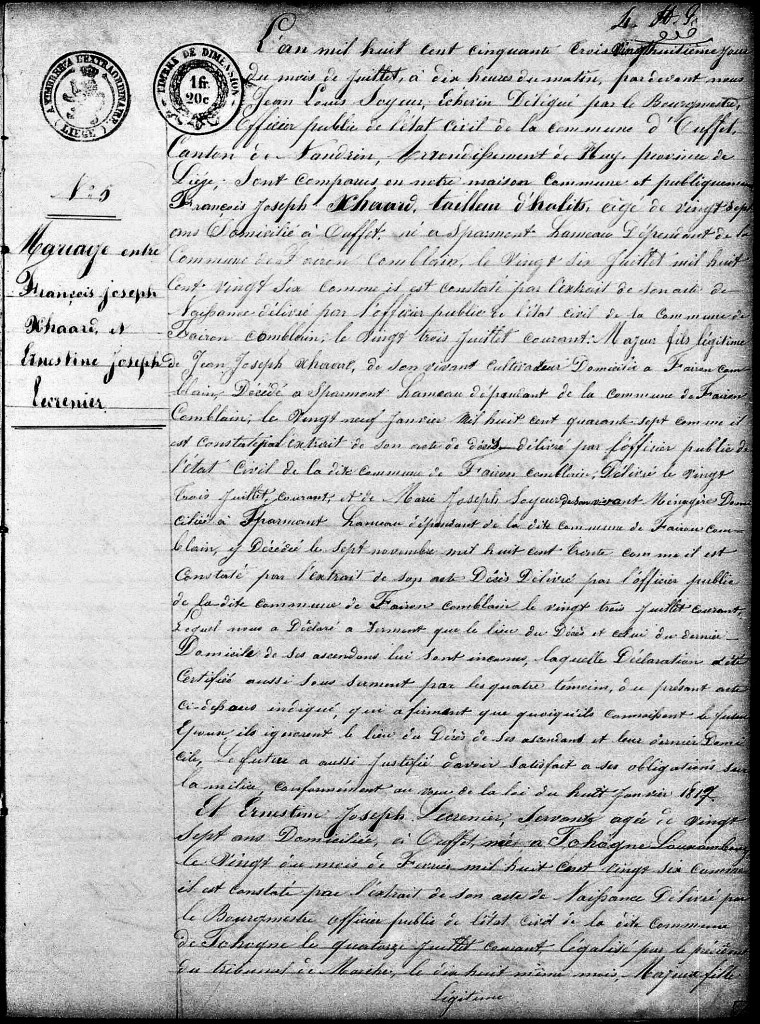 L'an mil huit cent cinquante trois Vingthuitième jour
du mois de Juillet, à dix heures du matin, par devant nous
Jean Louis Soyeur, Echevin Délégué par le Bourgmestre,
Officier public de l'état civil de la commune d'Ouffet,
Canton de Nandrin, Arrondissement de Huy, province de
Liège, Sont comparus en notre maison commune et publiquement
François Joseph Xhaard, tailleur d'habits, agé de vingt Sept
ans Domicilié à Ouffet, né a Sparmont hameau Dépendant de la
Commune de Fairon Comblain, le vingt six Juillet mil huit
Cent vingt six comme il est constaté par l'extrait de son acte de
Naissance délivré par l'officier public de l'état civil de la commune de
Fairon comblain, le vingt trois juillet courant. Majeur fils légitime
de Jean Joseph Xhaard, de son vivant cultivateur Domicilié a Fairon Com
blain, Décédé a Sparmont hameau dépendant de la commune de Fairon
Comblain, le Vingt neuf Janvier mil huit cent quarante sept comme il
est Constaté par extrait de son acte de décès délivré par l'officier public de
l'état civil de la dite commune de Fairon comblain, Délivré le vingt
trois Juillet courant et de Marie Joseph Soyeur de son vivant Ménagère Domi
ciliée à Sparmont hameau dépendant de la dite commune de Fairon com-
blain, y Décédée le sept novembre mil huit cent trente comme il est
Constaté par l'extrait de son acte Décès Délivré par l'officier public
de la dite commune de Fairon comblain le vingt trois Juillet courant,
Lequel nous a Déclaré a Serment que le lieu du Décès et celui du dernier
Domicile de ses ascendans lui sont inconnus, laquelle Déclaration a été
Certifiée aussi sous serment par les quatre témoins, du présent acte
ci-dessous indiqué, qui afirment que quoiqu'ils connaissent le futur
Epoux, ils ignorent le lieu du Décès de ses ascendans et leur dernier Domi
cile, Le futur a aussi Justifié d'avoir satisfait a ses obligations sur
la milice, conformément au vœu de la loi du huit Janvier 1817.
Et Ernestine Joseph Lecrenier, Servante agée de vingt
Sept ans Domiciliée, à Ouffet, née a Tohogne Luxembourg
le Vingt du mois de Février mil huit Cent vingt six comme
il est constaté par l'extrait de son acte de Naissance Délivré par
le Bourgmestre officier public de l'état civil de la dite commune
de Tohogne le quatorze juillet courant légalisé par le président
du tribunal de Marche, le dix huit même mois, Majeure fille
Légitime
A TIMBRER A L'EXTRAORDINAIRE
(LIEGE)
TIMBRE DE DIMENSION
1 fr.
20 c
N° 5
Mariage entre
François Joseph
Xhaard, et
Ernestine Joseph
Lecrenier.